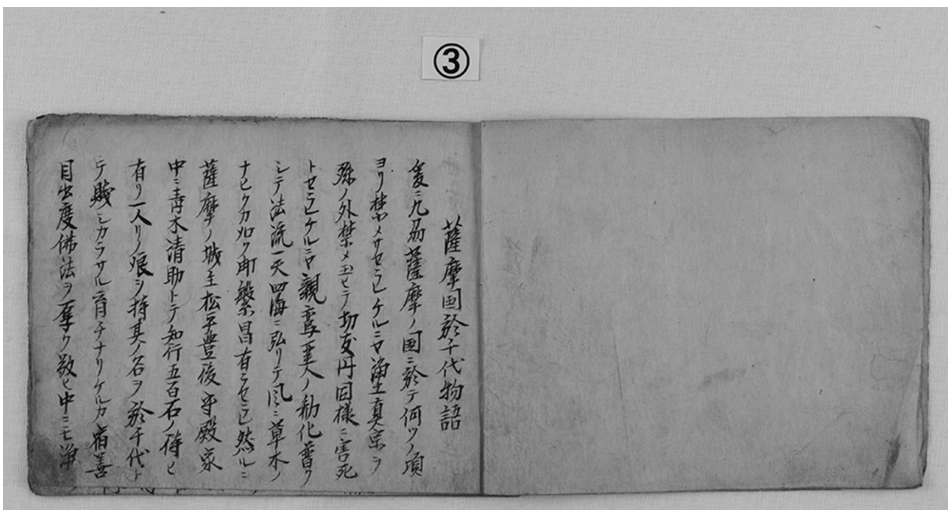 ③
薩摩国於千代物語
爰ニ九州薩摩ノ国ニ於テ何ツノ頃
ヨリ禁メサセラレケルニヤ浄土真宗ヲ
殊ノ外禁メ玉ヒテ切支丹同様ニ害死
トセラレケルニヤ親鸞聖人ノ勧化普ク
シテ法流一天四海ニ弘リテ風ニ草木ノ
ナヒクカ如ク御繁昌有ラセラレ然ルニ
薩摩ノ城主松平豊後守殿家
中ニ青木清助トテ知行五百石ノ侍ヒ
有リ一人リノ娘シ持其ノ名ヲ於千代ト
テ賎シカラサル育チナリケルカ宿善
目出度佛法ヲ厚ク敬ヒ中ニモ浄